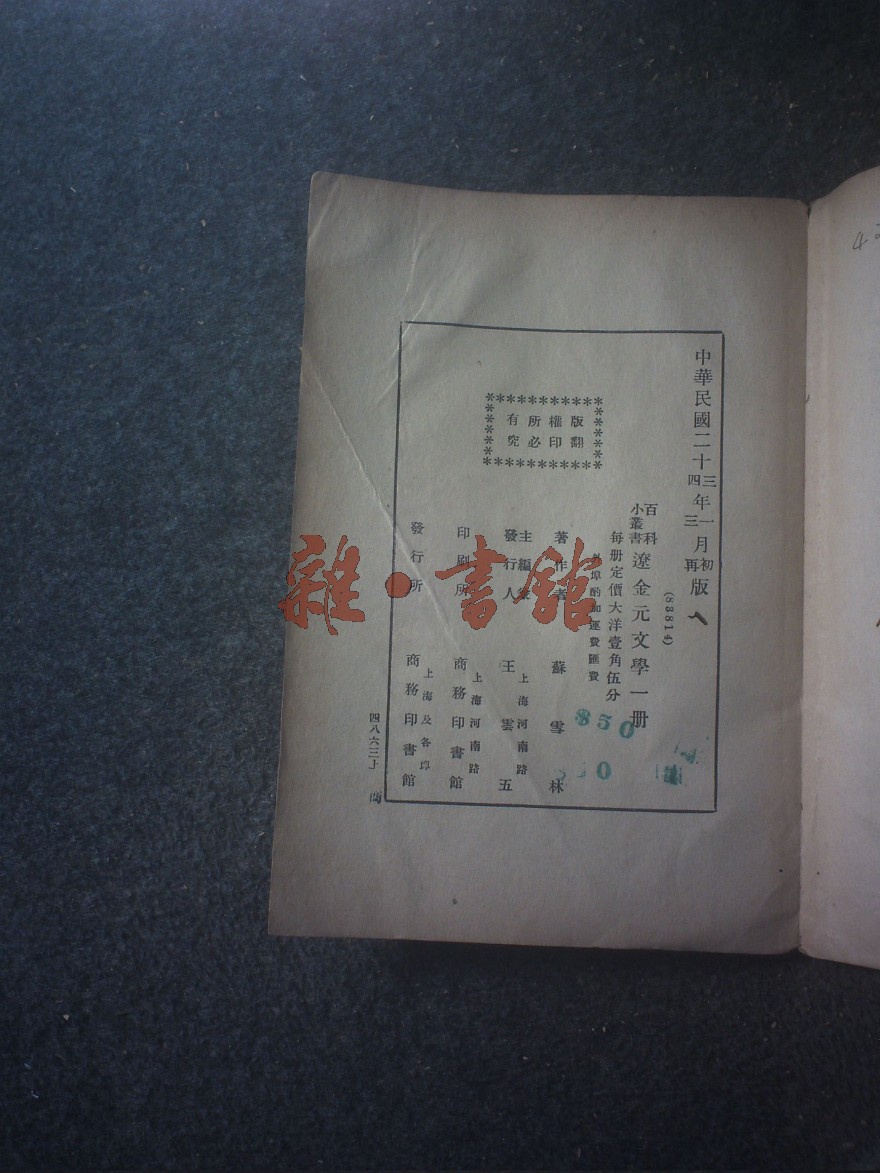 中華民國二十三年一月初版
四三再
(83814)
百科
小叢書
遼金元文學一册
每册定價大洋壹角伍分
埠酌加運費匯費
著作者 蘇雪林
主編兼
發行人 王雲五
上海河南路
印刷所 商務印書館
上海河南路
發行所 商務印書館
上海及各埠
版權所有
翻印必究
四八六三上
雜·書館
850